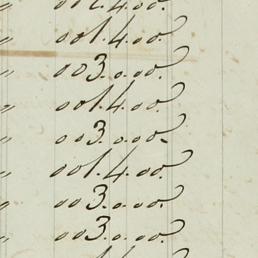 " 001.4.00.
" 003.0.00.
" 001.4.00.
" 003.0.00.
" 001.4.00.
" 003.0.00.
" 003.0.00.